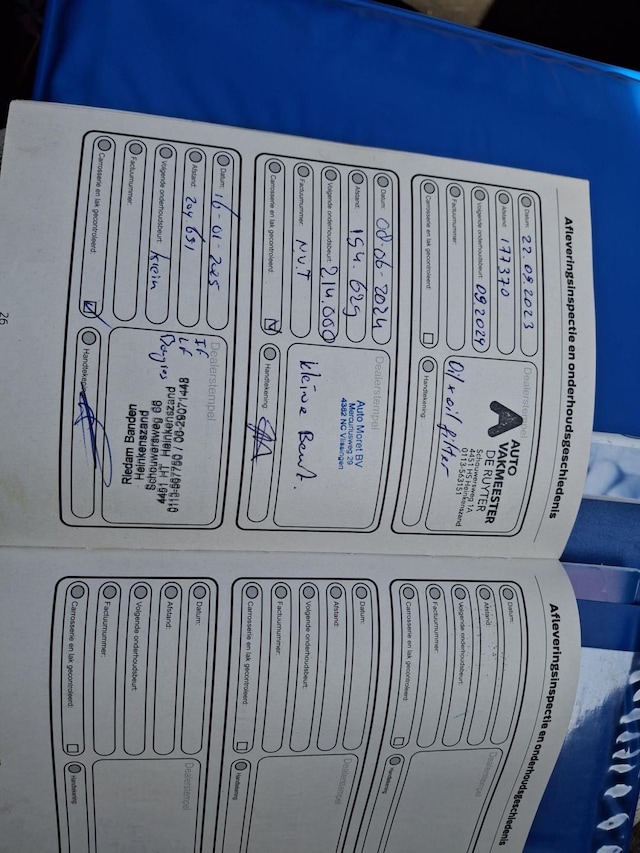 Afleveringsinspectie en onderhoudsgeschiedenis
Datum: 22.09.2023
Afstand: 177370
Volgende onderhoudsbeurt: 09 2024
Factuurnummer:
Carrosserie en lak gecontroleerd:
Dealerstempel
AUTO
VAKMEESTER
DE RUYTER
4451 HS Heinkenszand
0113-563151
Oil + oil filter
Handtekening:
Datum: 08 06-2024
Afstand: 194.629
Volgende onderhoudsbeurt: 214.000
Factuurnummer: N.V.T
Carrosserie en lak gecontroleerd:
Dealerstempel
Auto Moret BV
Mercuriusweg 29
4382 NC Vlissingen
kleine Beurt.
Handtekening:
Datum: 16-01-2025
Afstand: 204.691
Volgende onderhoudsbeurt: klein
Factuurnummer:
Carrosserie en lak gecontroleerd:
Dealerstempel
Handtekening:
26
Afleveringsinspectie en onderhoudsgeschiedenis
Datum:
Afstand:
Volgende onderhoudsbeurt:
Factuurnummer:
Carrosserie en lak gecontroleerd:
Dealerstempel
Handtekening:
Datum:
Afstand:
Volgende onderhoudsbeurt:
Factuurnummer:
Carrosserie en lak gecontroleerd:
Dealerstempel
Handtekening:
Datum:
Afstand:
Volgende onderhoudsbeurt:
Factuurnummer:
Carrosserie en lak gecontroleerd:
Dealerstempel
Handtekening: